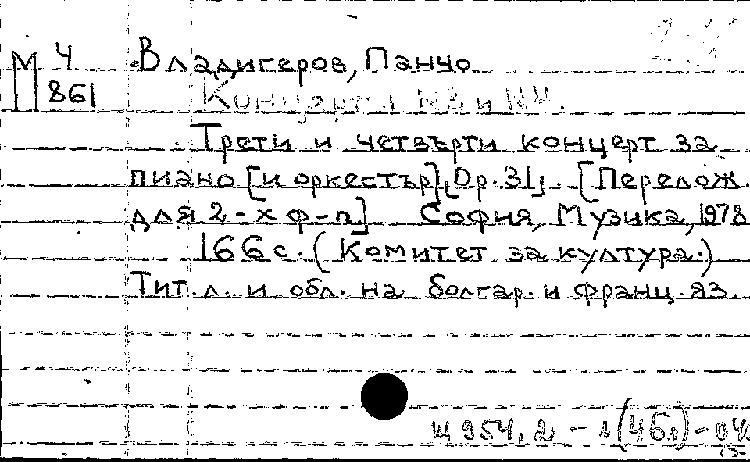 М 4 Владигеров, Панчо
861 Концерты
Трети и четвърти концерт за
пиано [и оркестър], Op. 31, [Перелож.
для 2-х ф-п.] София, Музика, 1978
166 с. (Комитет за култура.)
Тит. л. и обл. на болгар. и франц. яз.
Щ 954, 2 -